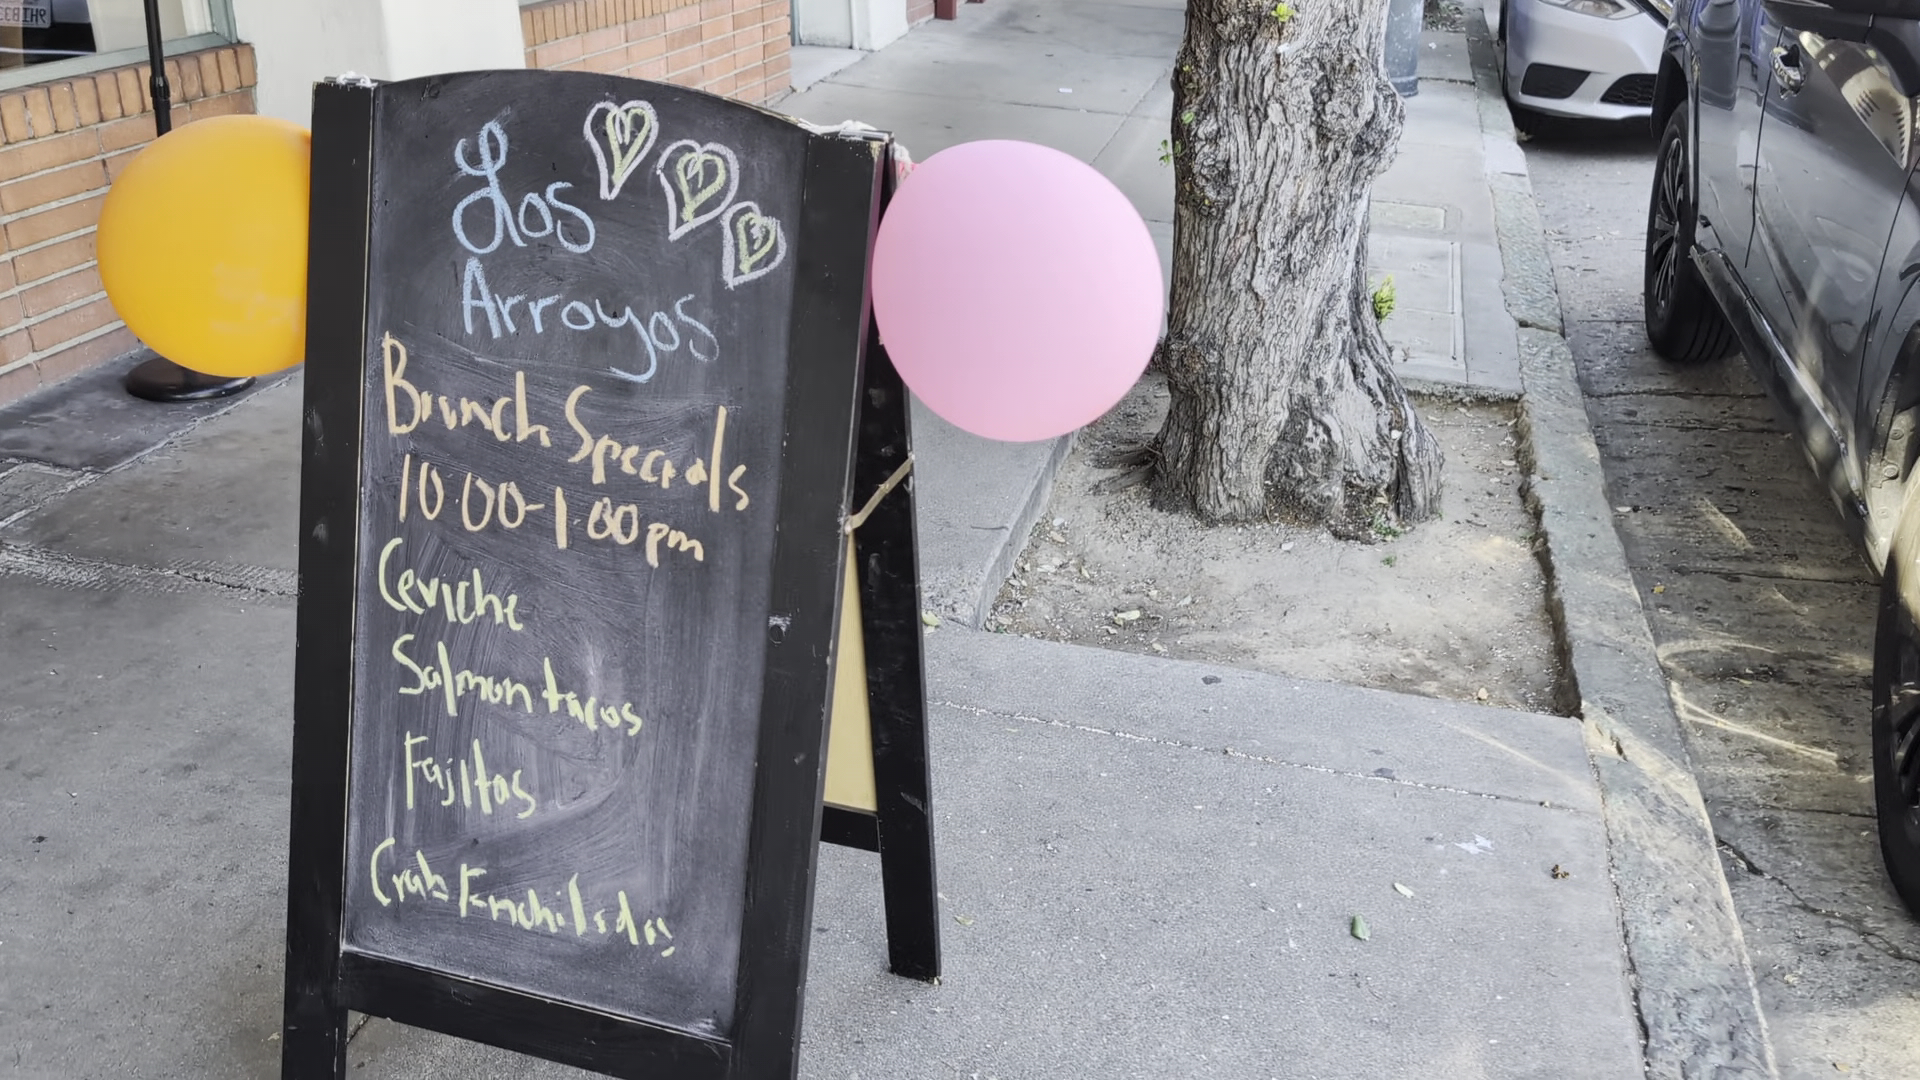 Los
Arroyos
Brunch Specials
10:00-1:00pm
Ceviche
Salmon tacos
Fajitas
Crab Enchiladas